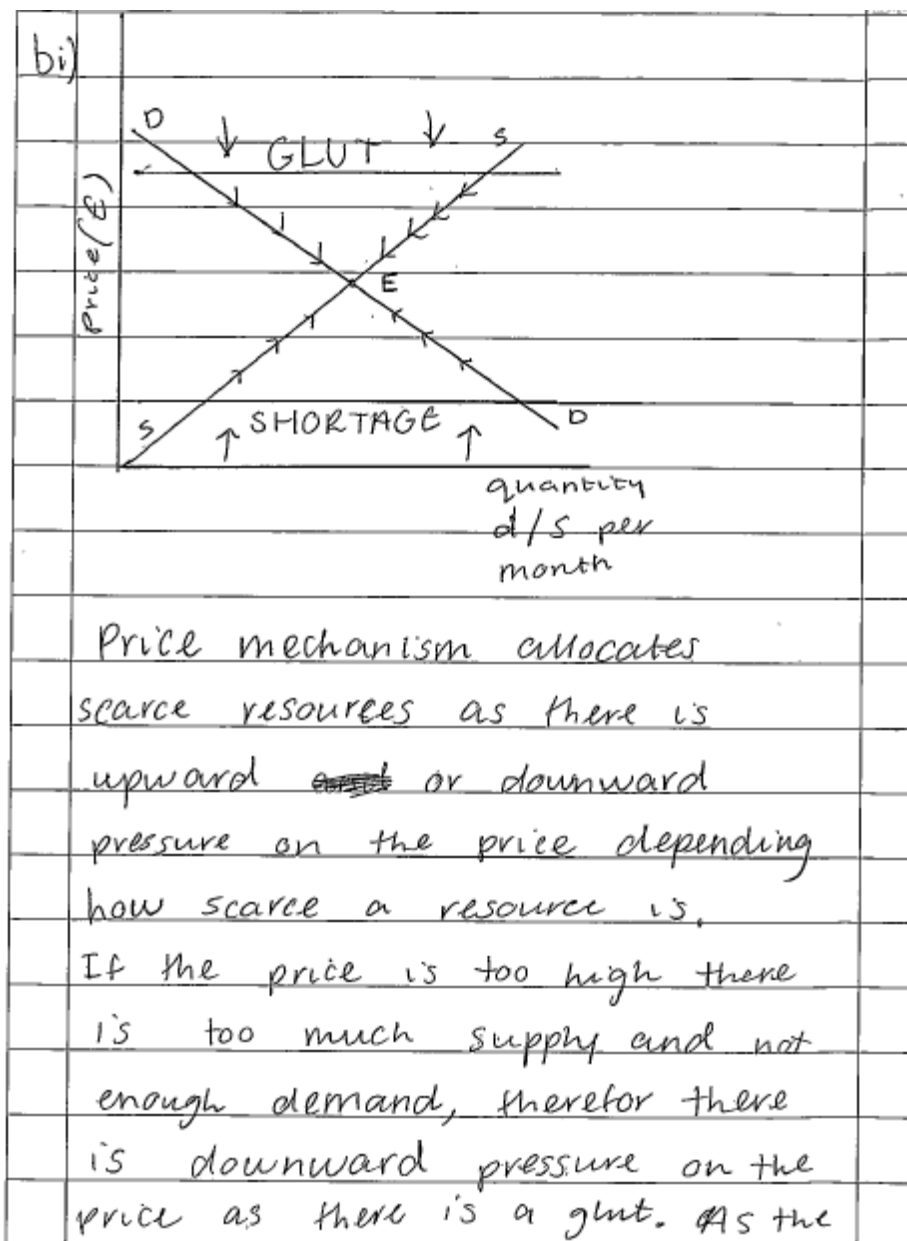 bi)
D
S
GLUT
Price(£)
E
S
SHORTAGE
D
quantity
d/s per
month
Price mechanism allocates
scarce resources as there is
upward or downward
pressure on the price depending
how scarce a resource is.
If the price is too high there
is too much supply and not
enough demand, therefor there
is downward pressure on the
price as there is a glut. As the